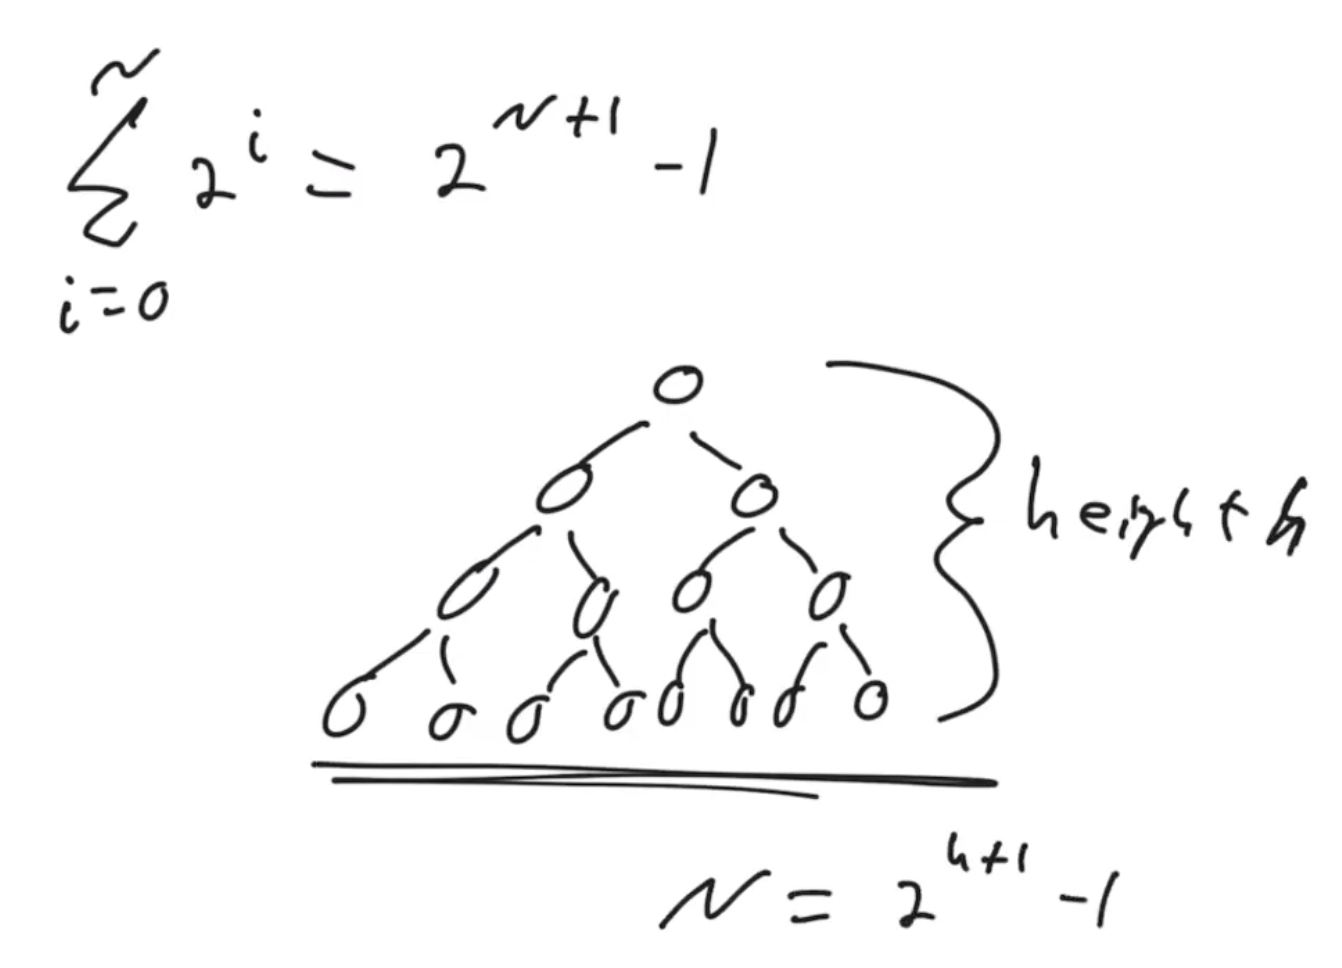 N
∑ 2^i = 2^{N+1} - 1
i=0
height h
N = 2^{h+1} - 1